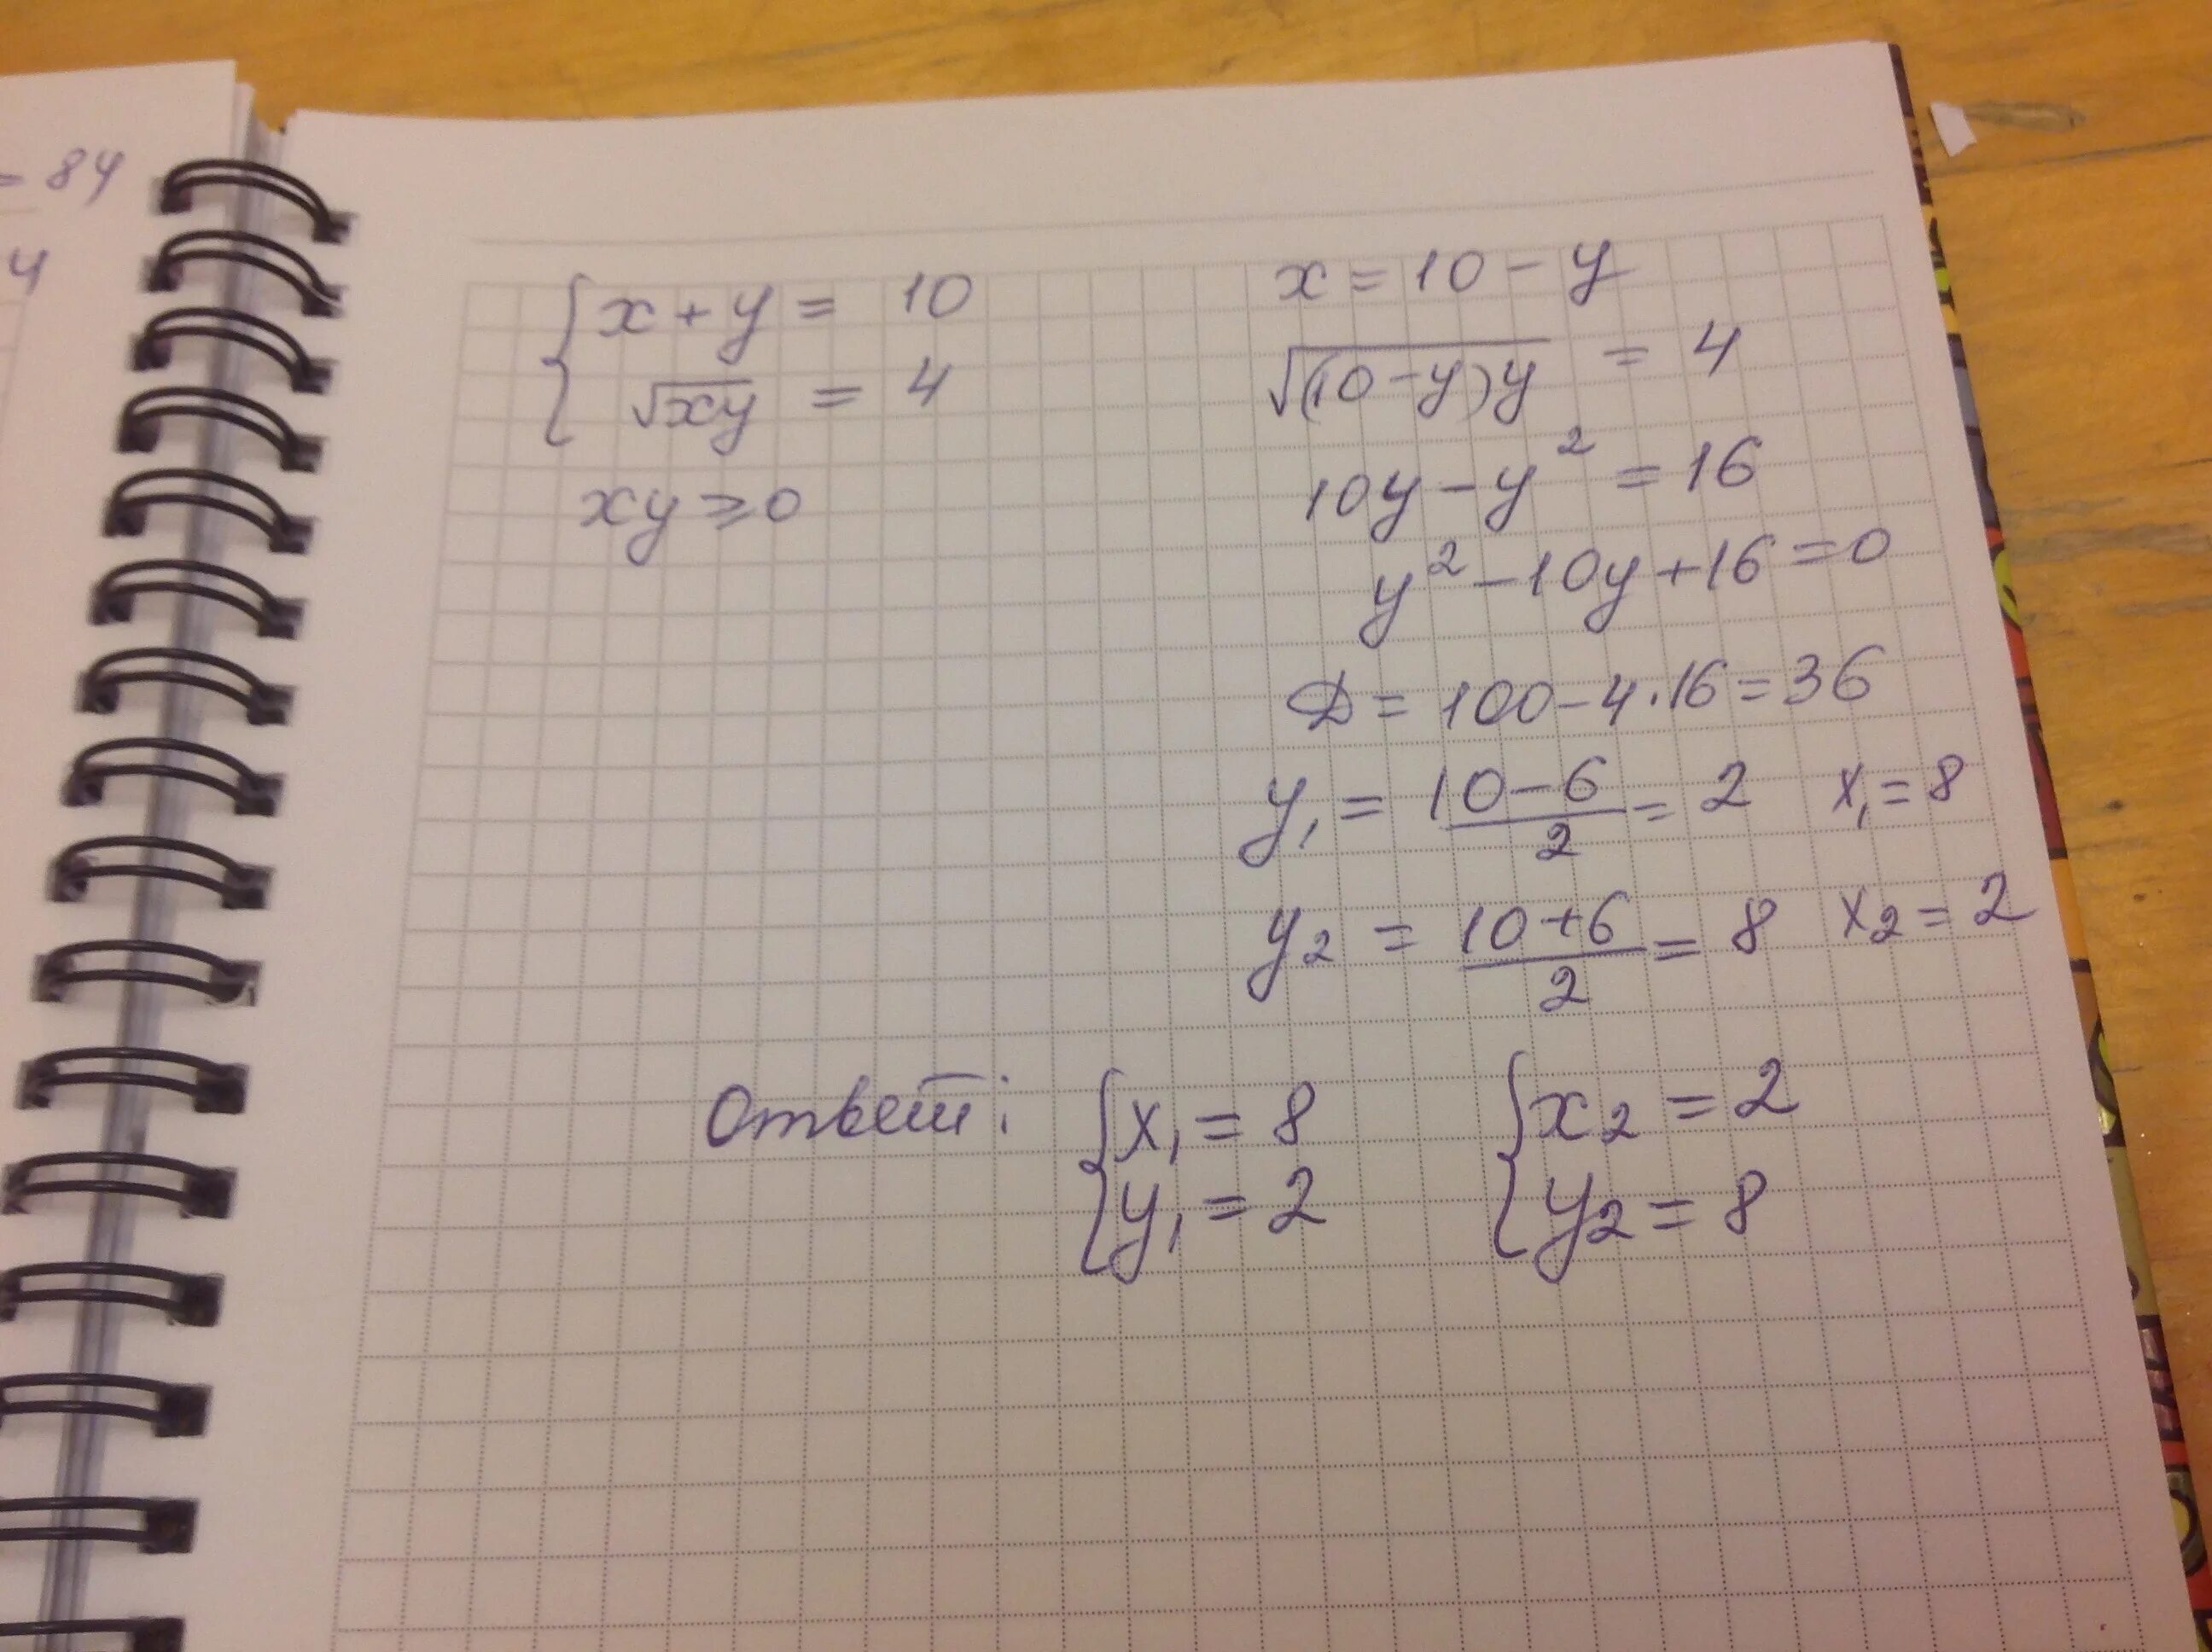 = 84
4
{ x + y = 10
√xy = 4
xy ⩾ 0
x = 10 - y
√(10-y)y = 4
10y - y² = 16
y² - 10y + 16 = 0
D = 100 - 4·16 = 36
y₁ = (10-6)/2 = 2 x₁ = 8
y₂ = (10+6)/2 = 8 x₂ = 2
Ответ: { x₁ = 8 { x₂ = 2
y₁ = 2 y₂ = 8